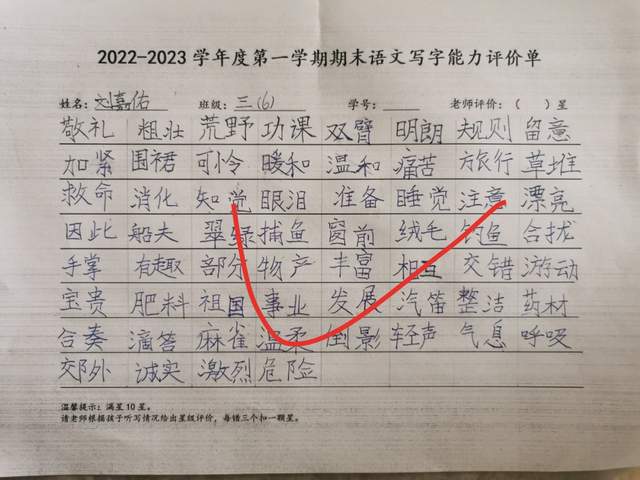 2022-2023 学年度第一学期期末语文写字能力评价单
姓名: 刘嘉佑 班级: 三(6) 学号: 老师评价: ( ) 星
敬礼 粗壮 荒野 功课 双臂 明朗 规则 留意
加紧 围裙 可怜 暖和 温和 痛苦 旅行 草堆
救命 消化 知觉 眼泪 准备 睡觉 注意 漂亮
因此 船夫 翠绿 捕鱼 窗前 绒毛 钓鱼 合拢
手掌 有趣 部分 物产 丰富 相互 交错 游动
宝贵 肥料 祖国 事业 发展 汽笛 整洁 药材
合奏 滴答 麻雀 温柔 倒影 轻声 气息 呼吸
郊外 诚实 激烈 危险
温馨提示: 满星 10 星。
请老师根据孩子听写情况给出星级评价, 每错三个扣一颗星。